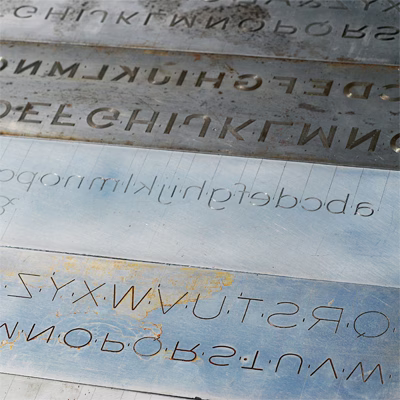 GHIJKLMNOPQRS
CDEFGHIJKLMN
DEFGHIJKLMNO
abcdefghijklmnopq
&
Q·R·S·T·U·V·W·X·Y·Z
M·N·O·P·Q·R·S·T·U·V·W